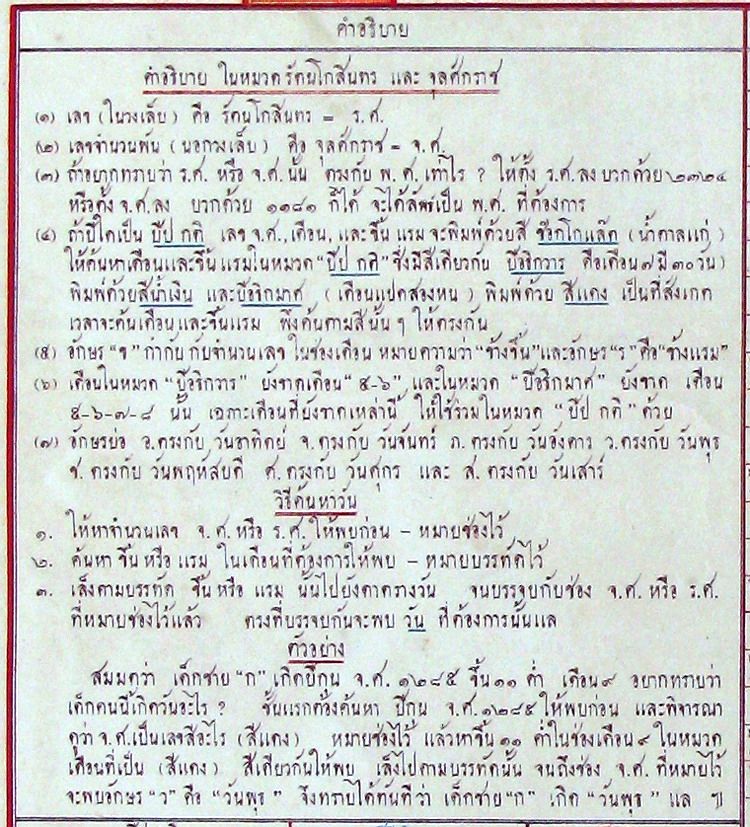 คำอธิบาย
คำอธิบาย ในหมวดรัตนโกสินทร และ จุลศักราช
(๑) เลข (ในวงเล็บ) คือ รัตนโกสินทร = ร.ศ.
(๒) เลขจำนวนพัน (นอกวงเล็บ) คือ จุลศักราช = จ.ศ.
(๓) ถ้าอยากทราบว่า ร.ศ. หรือ จ.ศ. นั้น ตรงกับ พ.ศ. เท่าไร ? ให้ตั้ง ร.ศ. ลง บวกด้วย ๒๓๒๔
หรือตั้ง จ.ศ. ลง บวกด้วย ๑๑๘๑ ก็ได้ จะได้ลัพธเป็น พ.ศ. ที่ต้องการ
(๔) ถ้าปีใดเป็น ปีปกติ เลข จ.ศ., เดือน, และขึ้น แรม จะพิมพ์ด้วยสี ช๊อกโกแล๊ต (น้ำตาลแก่)
ให้ค้นหาเดือนและขึ้นแรมในหมวด "ปีปกติ" ซึ่งมีสีเดียวกับ ปีอธิกวาร คือเดือน ๗ มี ๓๐ วัน)
พิมพ์ด้วยสีน้ำเงิน และปีอธิกมาศ (เดือนแปดสองหน) พิมพ์ด้วย สีแดง เป็นที่สังเกต
เวลาจะค้นเดือนและขึ้นแรม พึงค้นตามสีนั้น ๆ ให้ตรงกัน
(๕) อักษร "ข" กำกับ กับจำนวนเลข ในช่องเดือน หมายความว่า "ข้างขึ้น" และอักษร "ร" คือ "ข้างแรม"
(๖) เดือนในหมวด "ปีอธิกวาร" ยังขาดเดือน "๕-๖" และในหมวด "ปีอธิกมาศ" ยังขาด เดือน
๕-๖-๗-๘ นั้น เฉพาะเดือนที่ยังขาดเหล่านี้ ให้ใช้ร่วมในหมวด "ปีปกติ" ด้วย
(๗) อักษรย่อ อ.ตรงกับ วันอาทิตย์ จ.ตรงกับ วันจันทร์ ภ.ตรงกับ วันอังคาร ว.ตรงกับ วันพุธ
ช.ตรงกับ วันพฤหัสบดี ศ.ตรงกับ วันศุกร และ ส.ตรงกับ วันเสาร์
วิธีค้นหาวัน
๑. ให้หาจำนวนเลข จ.ศ. หรือ ร.ศ. ให้พบก่อน - หมายช่องไว้
๒. ค้นหา ขึ้น หรือ แรม ในเดือนที่ต้องการให้พบ - หมายบรรทัดไว้
๓. เล็งตามบรรทัด ขึ้น หรือ แรม นั้นไปยังตาตรางวัน จนบรรจบกับช่อง จ.ศ. หรือ ร.ศ.
ที่หมายช่องไว้แล้ว ตรงที่บรรจบกันจะพบ วัน ที่ต้องการนั้นแล
ตัวอย่าง
สมมตว่า เด็กชาย "ก" เกิดปีกุน จ.ศ. ๑๒๘๕ ขึ้น ๑๑ ค่ำ เดือน ๙ อยากทราบว่า
เด็กคนนี้เกิดวันอะไร ? ชั้นแรกต้องค้นหา ปีกุน จ.ศ. ๑๒๘๕ ให้พบก่อน และพิจารณา
ดูว่า จ.ศ. เป็นเลขสีอะไร (สีแดง) หมายช่องไว้ แล้วหาขึ้น ๑๑ ค่ำในช่องเดือน ๙ ในหมวด
เดือนที่เป็น (สีแดง) สีเดียวกันให้พบ เล็งไปตามบรรทัดนั้น จนถึงช่อง จ.ศ. ที่หมายไว้
จะพบอักษร "ว" คือ "วันพุธ" จึงทราบได้ทันทีว่า เด็กชาย "ก" เกิด "วันพุธ" แล ฯ